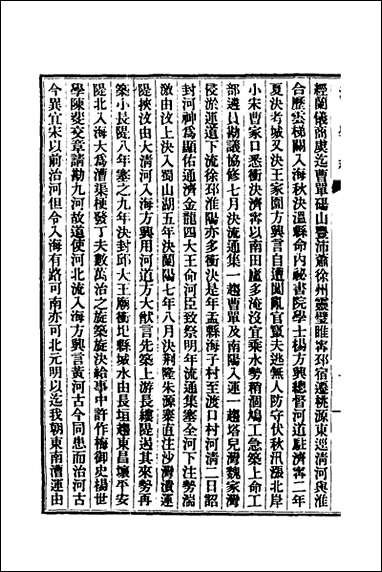 經蘭儀商虞迄曹單碭山豐沛蕭徐州靈璧睢寧邳宿遷桃源東逕清河與淮
合歷雲梯關入海秋決溫縣命內祕書院學士楊方興總督河道駐濟甯二年
夏決考城又決王家園方興言自遭闖亂官竄夫逃無人防守伏秋汛漲北岸
小宋曹家口悉衝決濟甯以南田廬多淹沒宜乘水勢稍涸鳩工急築上命工
部遴員勘議協修七月決流通集一趨曹單及南陽入運一趨塔兒灣魏家灣
侵淤運道下流徐邳淮陽亦多衝決是年孟縣海子村至渡口村河清二日詔
封河神為顯佑通濟金龍四大王命河臣致祭明年流通集塞全河下注勢湍
激由汶上決入蜀山湖五年決蘭陽七年八月決荆隆朱源寨直注沙灣潰運
隄挾汶由大清河入海方興用河道方大猷言先築上游長縷隄遏其來勢再
築小長隄八年塞之九年決封邱大王廟衝圮縣城水由長垣趨東昌壞平安
隄北入海大為漕渠梗發丁夫數萬治之旋築旋決給事中許作梅御史楊世
學陳斐交章請勘九河故道使河北流入海方興言黃河古今同患而治河古
今異宜宋以前治河但令入海有路可南亦可北元明以迄我朝東南漕運由